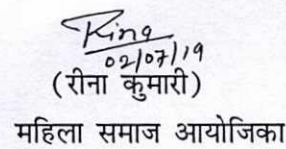 Rina
02/07/19
(रीना कुमारी)
महिला समाज आयोजिका